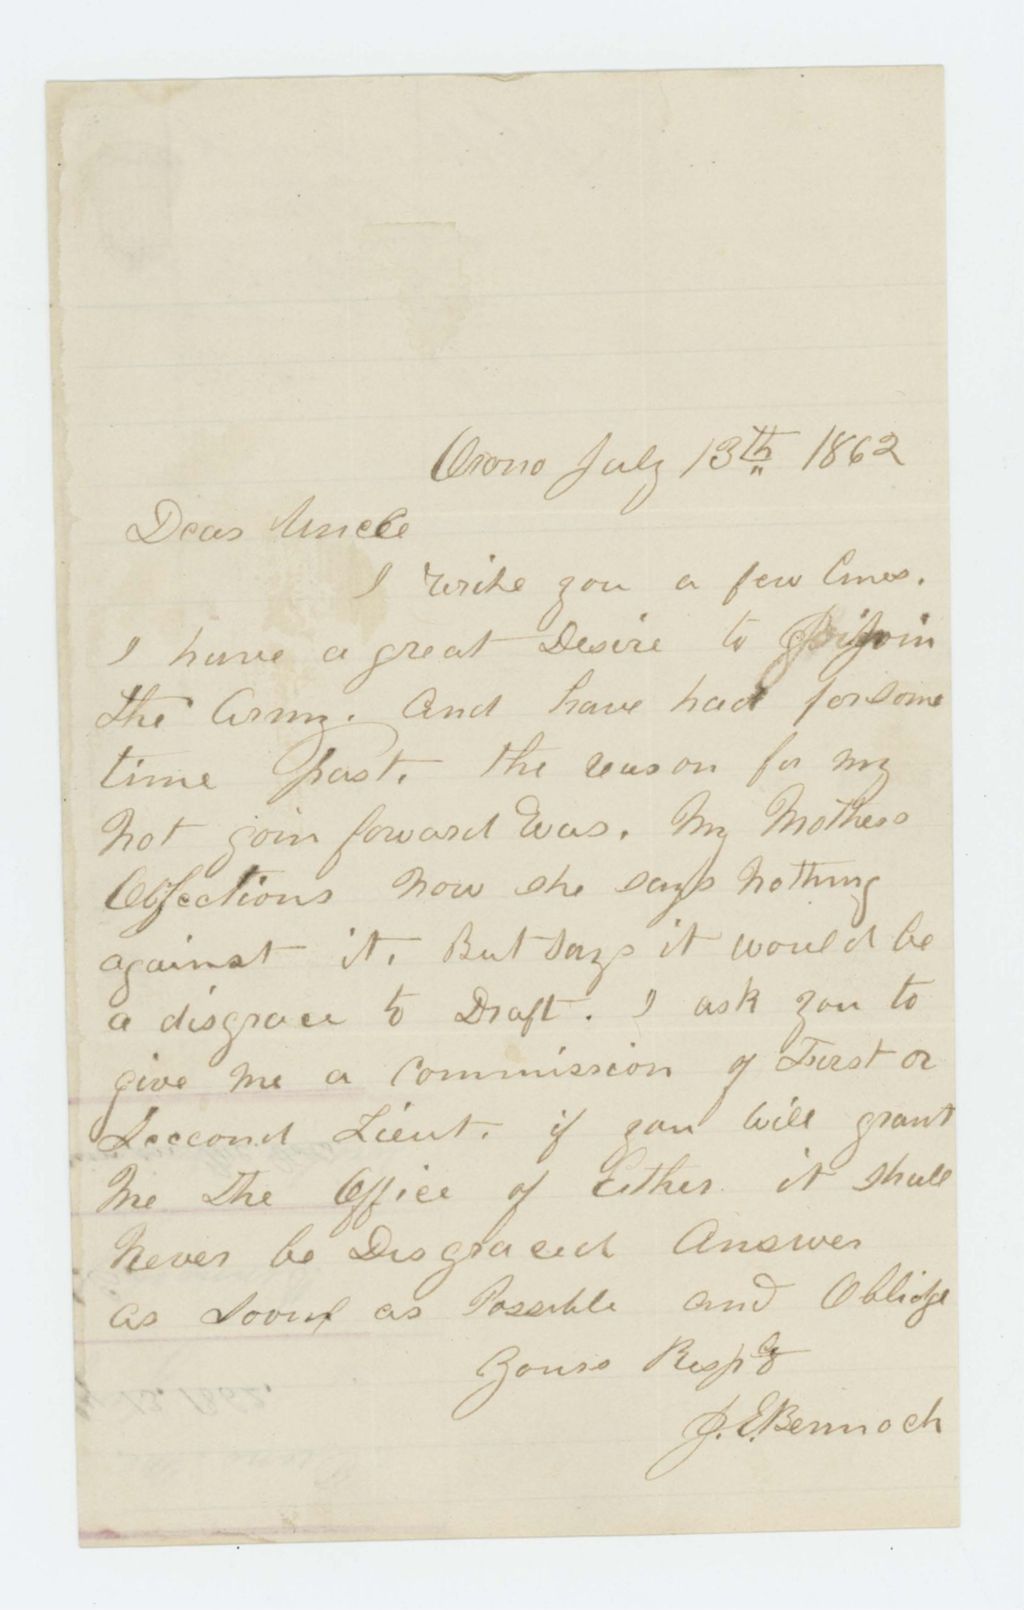 Orono July 13th 1862
Dear Uncle
I write you a few lines.
I have a great Desire to join
the Army. And have had for some
time past. the reason for my
Not goin forward Was. My Mothers
Objections Now she says Nothing
against it. But says it would be
a disgrace to Draft. I ask you to
give Me a Commission of First or
Seccond Lieut. if you Will grant
Me The Office of Either it shall
Never be Disgraced Answer
as Soon as Possible and Oblidge
Yours Resply
J. E. Bennoch